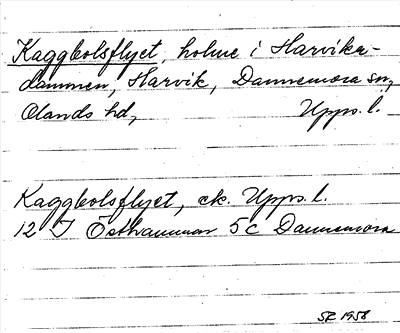 Kaggbolsflyet, holme i Harvika-
dammen, Harvik, Dannemora sn,
Olands hd, Upps. l.
Kaggbolsflyet, ek. Upps. l.
12 I Östhammar 5 c Dannemora
SZ 1958